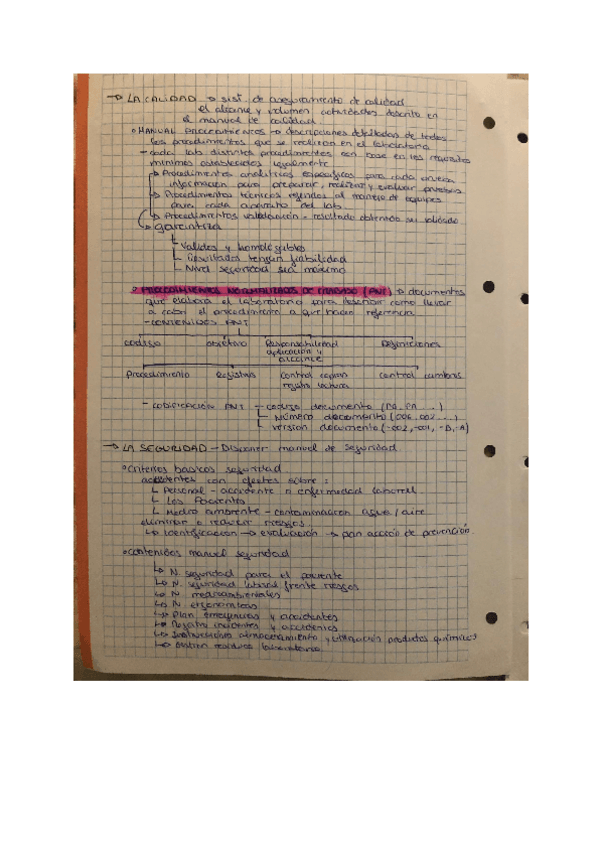 → LA CALIDAD → sist. de aseguramiento de calidad
el alcance y volumen actividades descrito en
el manual de calidad.
° MANUAL PROCEDIMIENTOS → descripciones detalladas de todos
los procedimientos que se realizan en el laboratorio
- cada lab distintos procedimientos con base en los requisitos
mínimos establecidos legalmente
↳ Procedimientos analíticos específicos para cada prueba
información para preparar, realizar y evaluar pruebas
↳ Procedimientos técnicos referidos al manejo de equipos
para cada aparato del lab.
↳ Procedimientos validación - resultado obtenido sea validado
↳ garantiza
Validos y homologables
Resultados tengan fiabilidad
Nivel seguridad sea máximo
° PROCEDIMIENTOS NORMALIZADOS DE TRABAJO (PNT) → documentos
que elabora el laboratorio para describir como llevar
a cabo el procedimiento a que hacen referencia
- CONTENIDOS PNT
codigo objetivo Responsabilidad Definiciones
aplicación y
alcance
Procedimiento Registros Control copias control cambios
registro lecturas
- codificación PNT - codigo documento (PO, PA ...)
Número documento (006, 007 ...)
version documento (-002, -001, -B, -A)
→ LA SEGURIDAD - Disponer manual de seguridad.
° Criterios basicos seguridad
accidentes con efectos sobre :
↳ Personal - accidente o enfermedad laboral
↳ Los Pacientes
↳ Medio ambiente - contaminacion agua / aire
eliminar o reducir riesgos
↳ Identificacion → evaluación → plan acción de prevención.
° contenidos manual seguridad
↳ N. seguridad para el paciente
↳ N. seguridad laboral frente riesgos
↳ N. medioambientales
↳ N. ergonomicas
↳ Plan emergencias y accidentes
↳ Registro incidentes y accidentes
↳ Instrucciones almacenamiento y utilización productos químicos
↳ Gestion residuos laboratorio